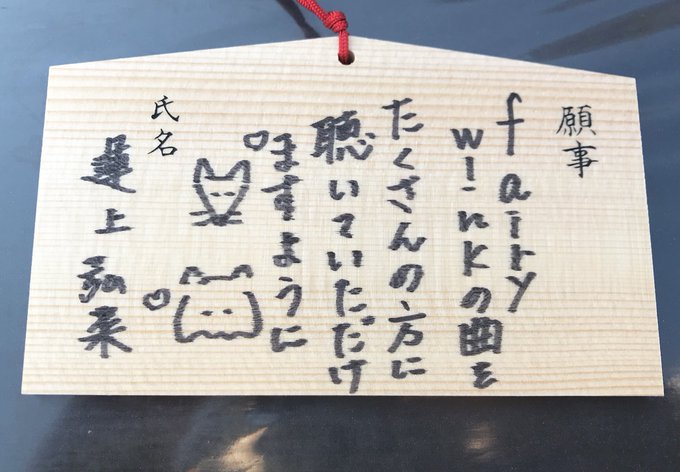 願事
fairy
winkの曲を
たくさんの方に
聴いていただけ
ますように
氏名
最上弘菜